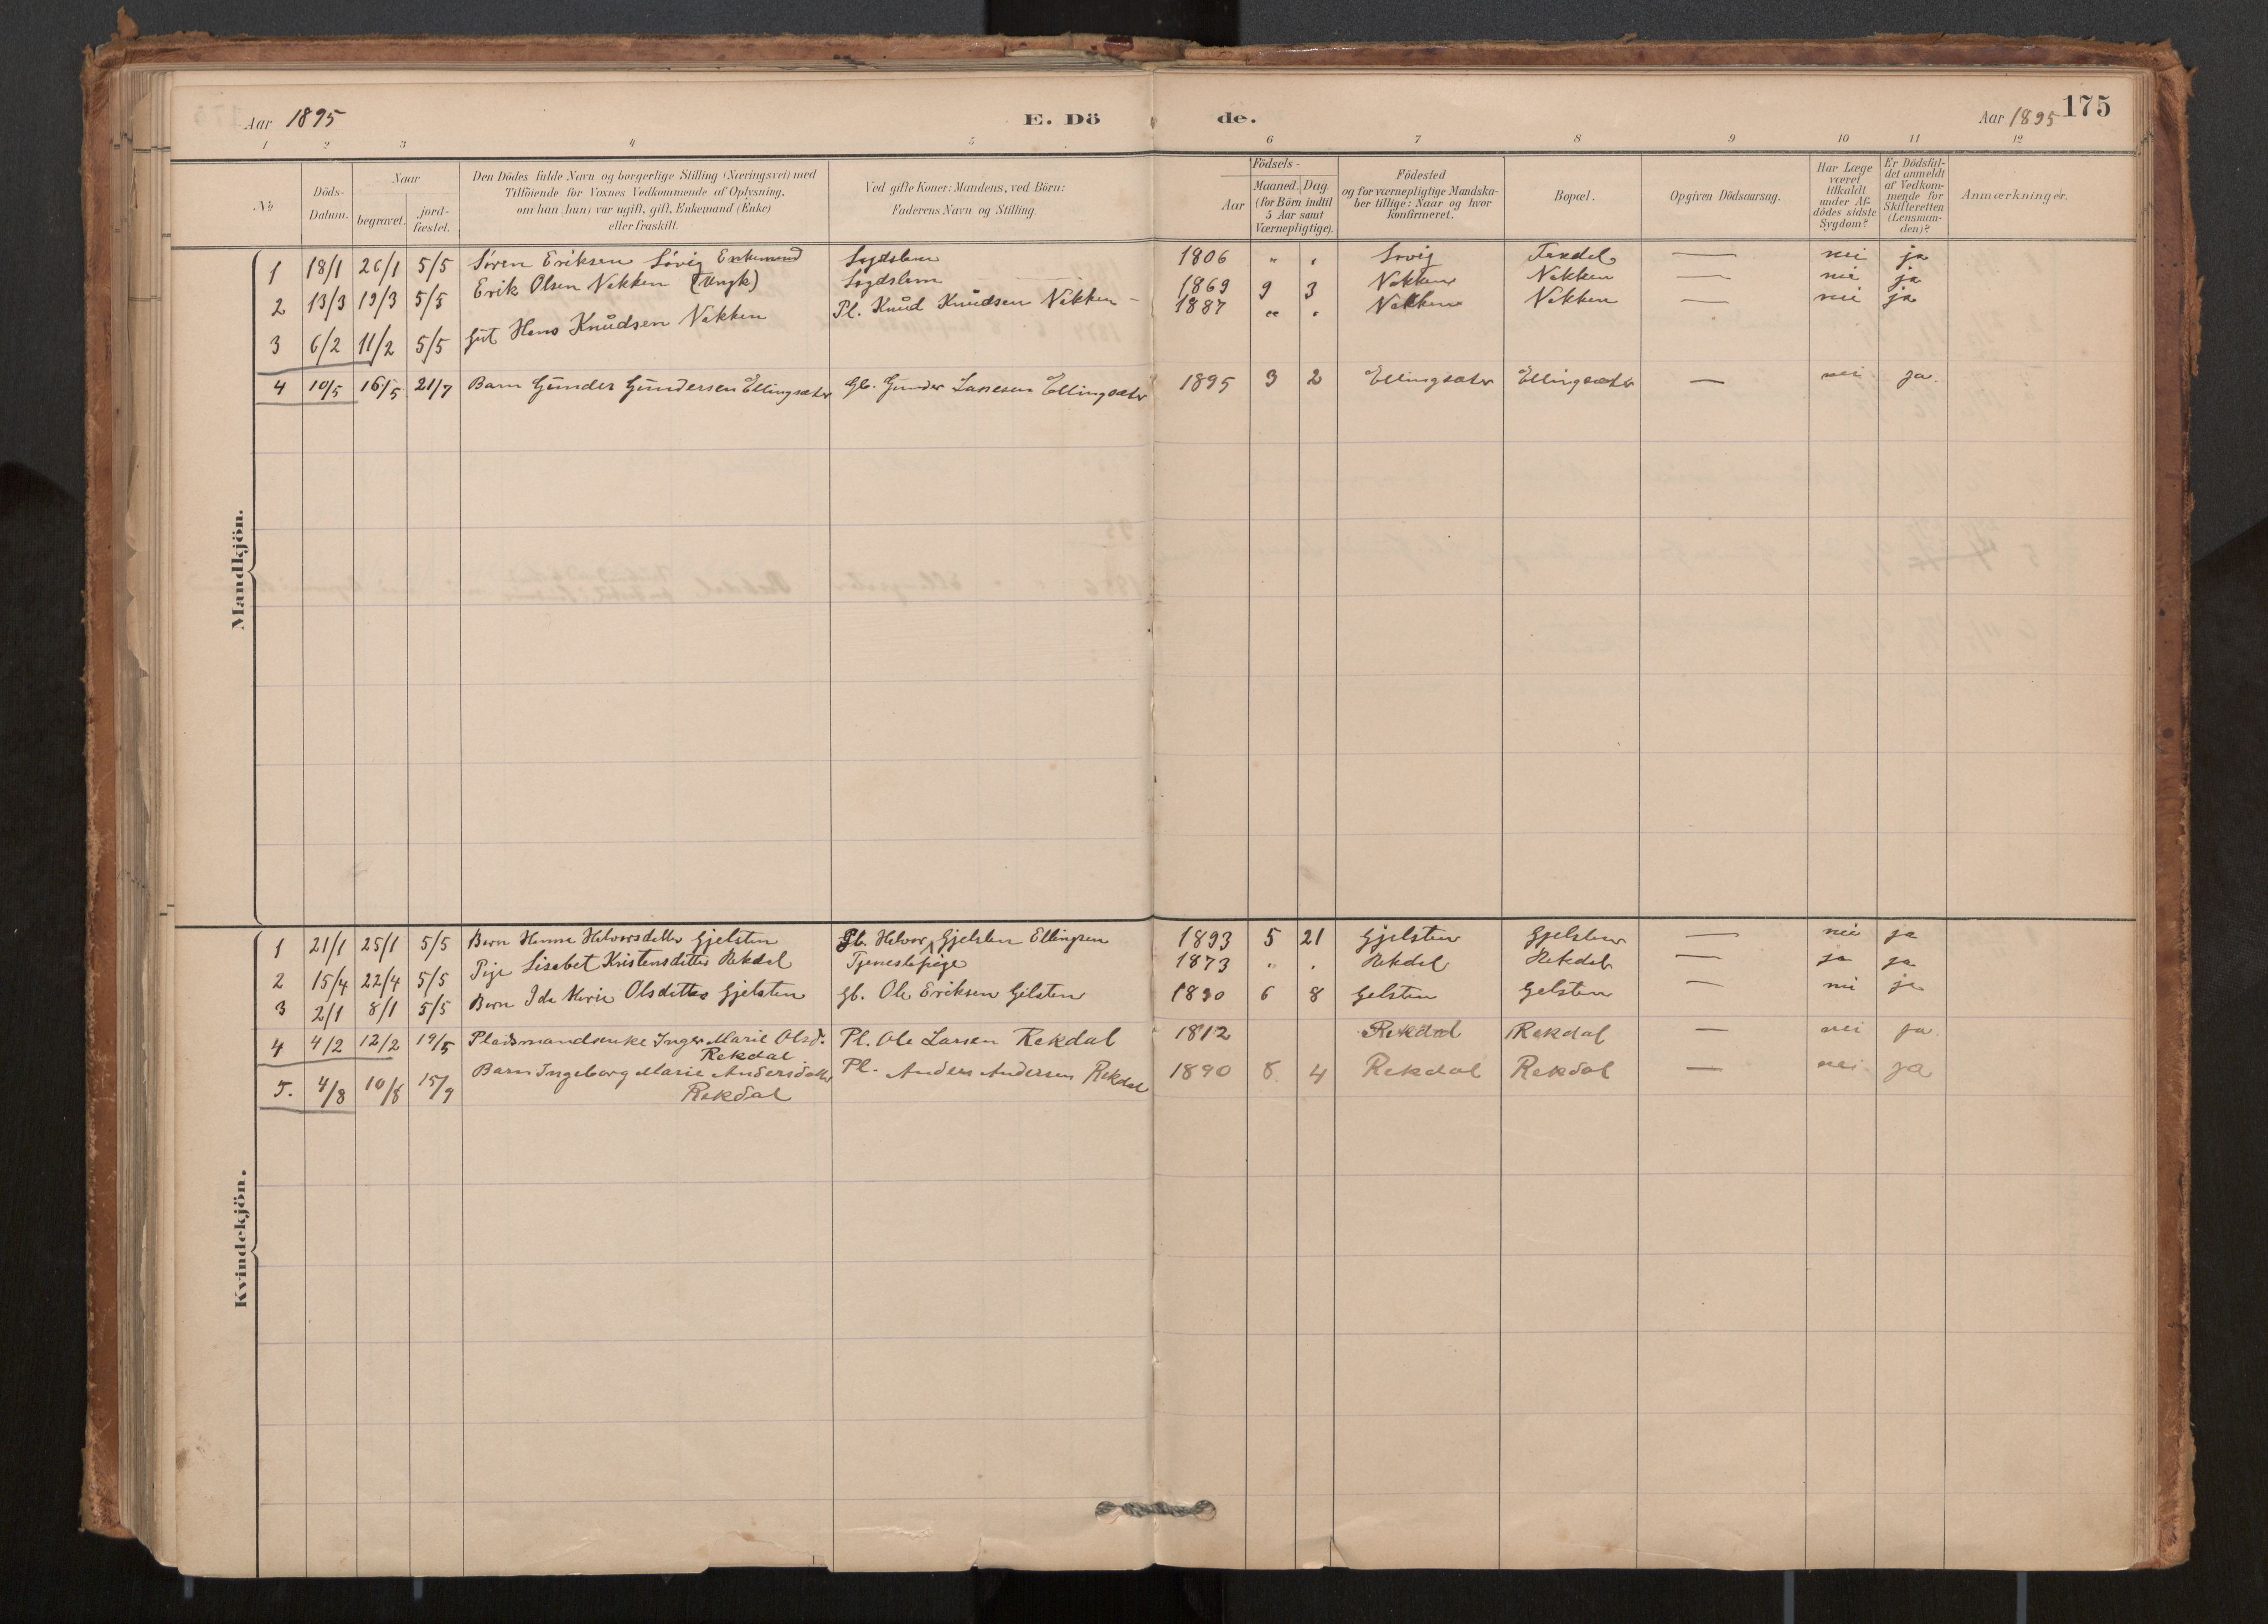 Aar 1895 E. Dö de. Aar 1895 175
1 2 3 4 5 6 7 8 9 10 11 12
№
Döds-
Datum.
Naar
begravet.
jord-
fæstet.
Den Dödes fulde Navn og borgerlige Stilling (Næringsvei) med
Tilföiende for Voxnes Vedkommende af Oplysning,
om han (hun) var ugift, gift, Enkemand (Enke)
eller fraskilt.
Ved gifte Koner: Mandens, ved Börn:
Faderens Navn og Stilling.
Födsels-
Aar
Maaned. Dag.
(for Börn indtil
5 Aar samt
Værnepligtige).
Födested
og for værnepligtige Mandska-
ber tillige: Naar og hvor
konfirmeret.
Bopæl.
Opgiven Dödsaarsag.
Har Læge
været
tilkaldt
under Af-
dödes sidste
Sygdom?
Er Dödsfal-
det anmeldt
af Vedkom-
mende for
Skifteretten
(Lensman-
den)?
Anmærkninger.
Mandkjön.
1 18/1 26/1 5/5 Sören Eriksen Sövig Enkemand Lægdslem 1806 " " Sövig — nei ja
2 13/3 19/3 5/5 Erik Olsen Nakken (Ungk) Lægdslem 1869 9 3 Nakken Nakken — nei ja
3 6/2 11/2 5/5 Gut Hans Knudsen Nakken Pl. Knud Knudsen Nakken — 1887 " " Nakken Nakken — nei ja
4 10/5 16/5 21/7 Barn Gunder Gundersen Ellingsæter Gb. Gunder Lassesen Ellingsæter 1895 3 2 Ellingsæter Ellingsæter — nei ja.
Kvindekjön.
1 21/1 25/1 5/5 Barn Hanna Halvorsdatter Gjelsten Gb. Halvor Gjelsten Ellingsen 1893 5 21 Gjelsten Gjelsten — nei ja
2 15/4 22/4 5/5 Pige Lisabet Kristensdatter Rekdal Tjenestepige 1873 " " Rekdal Rekdal — ja ja
3 2/1 8/1 5/5 Barn Ida Marie Olsdatter Gjelsten Gb. Ole Eriksen Gjelsten 1890 6 8 Gelsten Gelsten — nei ja
4 4/2 12/2 19/5 Pladsmandsenke Inger Marie Olsd. Pl. Ole Larsen Rekdal 1812 Rekdal Rekdal — nei ja.
Rekdal
5. 4/8 10/8 15/9 Barn Ingeborg Marie Andersdatter Pl. Anders Andersen Rekdal 1890 8. 4 Rekdal Rekdal — nei. ja
Rekdal